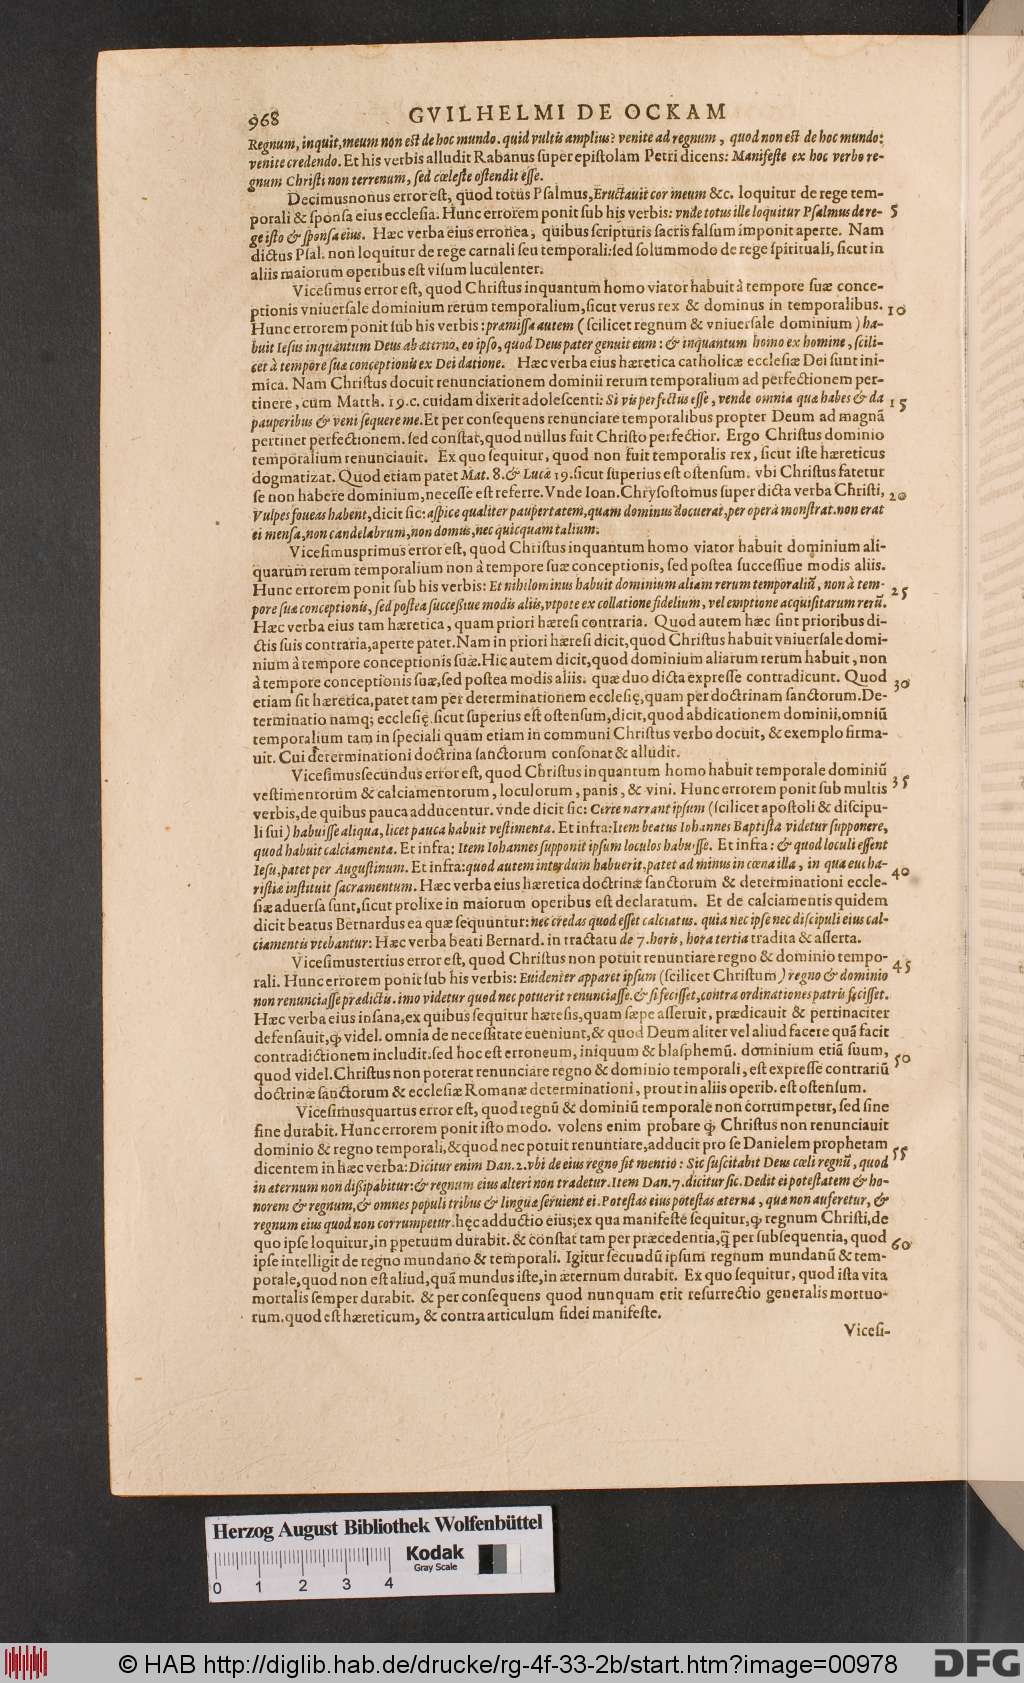 968 GVILHELMI DE OCKAM
Regnum, inquit, meum non est de hoc mundo. quid vultis amplius? venite ad regnum, quod non est de hoc mundo:
venite credendo. Et his verbis alludit Rabanus super epistolam Petri dicens: Manifeste ex hoc verbo re-
gnum Christi non terrenum, sed cœleste ostendit esse.
Decimusnonus error est, quod totus Psalmus, Eructauit cor meum &c. loquitur de rege tem-
porali & sponsa eius ecclesia. Hunc errorem ponit sub his verbis: vnde totus ille loquitur Psalmus de re- 5
ge isto & sponsa eius. Hæc verba eius erronea, quibus scripturis sacris falsum imponit aperte. Nam
dictus Psal. non loquitur de rege carnali seu temporali: sed solummodo de rege spirituali, sicut in
aliis maiorum operibus est visum luculenter.
Vicesimus error est, quod Christus inquantum homo viator habuit à tempore suæ conce-
ptionis vniuersale dominium rerum temporalium, sicut verus rex & dominus in temporalibus. 10
Hunc errorem ponit sub his verbis: præmissa autem (scilicet regnum & vniuersale dominium) ha-
buit Iesus inquantum Deus ab æterno, eo ipso, quod Deus pater genuit eum: & inquantum homo ex homine, scili-
cet à tempore suæ conceptionis ex Dei datione. Hæc verba eius hæretica catholicæ ecclesiæ Dei sunt ini-
mica. Nam Christus docuit renunciationem dominii rerum temporalium ad perfectionem per-
tinere, cum Matth. 19. c. cuidam dixerit adolescenti: Si vis perfectus esse, vende omnia quæ habes & da 15
pauperibus & veni sequere me. Et per consequens renunciare temporalibus propter Deum ad magnã
pertinet perfectionem. sed constat, quod nullus fuit Christo perfectior. Ergo Christus dominio
temporalium renunciauit. Ex quo sequitur, quod non fuit temporalis rex, sicut iste hæreticus
dogmatizat. Quod etiam patet Mat. 8. & Lucæ 19. sicut superius est ostensum. vbi Christus fatetur
se non habere dominium, necesse est referre. Vnde Ioan. Chrysostomus super dicta verba Christi, 20
Vulpes foueas habent, dicit sic: aspice qualiter paupertatem, quam dominus docuerat, per opera monstrat. non erat
ei mensa, non candelabrum, non domus, nec quicquam talium.
Vicesimusprimus error est, quod Christus inquantum homo viator habuit dominium ali-
quarum rerum temporalium non à tempore suæ conceptionis, sed postea successiue modis aliis.
Hunc errorem ponit sub his verbis: Et nihilominus habuit dominium aliam rerum temporaliũ, non à tem- 25
pore suæ conceptionis, sed postea successiue modis aliis, vtpote ex collatione fidelium, vel emptione acquisitarum rerũ.
Hæc verba eius tam hæretica, quam priori hæresi contraria. Quod autem hæc sint prioribus di-
ctis suis contraria, aperte patet. Nam in priori hæresi dicit, quod Christus habuit vniuersale domi-
nium à tempore conceptionis suæ. Hic autem dicit, quod dominium aliarum rerum habuit, non
à tempore conceptionis suæ, sed postea modis aliis. quæ duo dicta expresse contradicunt. Quod 30
etiam sit hæretica, patet tam per determinationem ecclesię, quam per doctrinam sanctorum. De-
terminatio namq; ecclesię. sicut superius est ostensum, dicit, quod abdicationem dominii, omniũ
temporalium tam in speciali quam etiam in communi Christus verbo docuit, & exemplo firma-
uit. Cui determinationi doctrina sanctorum consonat & alludit.
Vicesimussecundus error est, quod Christus inquantum homo habuit temporale dominiũ 35
vestimentorum & calciamentorum, loculorum, panis, & vini. Hunc errorem ponit sub multis
verbis, de quibus pauca adducentur. vnde dicit sic: Certe narrant ipsum (scilicet apostoli & discipu-
li sui) habuisse aliqua, licet pauca habuit vestimenta. Et infra: Item beatus Iohannes Baptista videtur supponere,
quod habuit calciamenta. Et infra: Item Iohannes supponit ipsum loculos habuisse. Et infra: & quod loculi essent
Iesu, patet per Augustinum. Et infra: quod autem interdum habuerit, patet ad minus in cœna illa, in qua eucha- 40
ristiæ instituit sacramentum. Hæc verba eius hæretica doctrinæ sanctorum & determinationi eccle-
siæ aduersa sunt, sicut prolixe in maiorum operibus est declaratum. Et de calciamentis quidem
dicit beatus Bernardus ea quæ sequuntur: nec credas quod esset calciatus. quia nec ipse nec discipuli eius cal-
ciamentis vtebantur: Hæc verba beati Bernard. in tractatu de 7. horis, hora tertia tradita & asserta.
Vicesimustertius error est, quod Christus non potuit renuntiare regno & dominio tempo- 45
rali. Hunc errorem ponit sub his verbis: Euidenter apparet ipsum (scilicet Christum) regno & dominio
non renunciasse prædictis. imo videtur quod nec potuerit renunciasse. & si fecisset, contra ordinationes patris fęcisset.
Hæc verba eius insana, ex quibus sequitur hæresis, quam sæpe asseruit, prædicauit & pertinaciter
defensauit, ꝙ videl. omnia de necessitate eueniunt, & quod Deum aliter vel aliud facere quã facit
contradictionem includit. sed hoc est erroneum, iniquum & blasphemũ. dominium etiã suum, 50
quod videl. Christus non poterat renunciare regno & dominio temporali, est expresse contrariũ
doctrinæ sanctorum & ecclesiæ Romanæ determinationi, prout in aliis operib. est ostensum.
Vicesimusquartus error est, quod regnũ & dominiũ temporale non corrumpetur, sed sine
fine durabit. Hunc errorem ponit isto modo. volens enim probare ꝙ Christus non renunciauit
dominio & regno temporali, & quod nec potuit renuntiare, adducit pro se Danielem prophetam 55
dicentem in hæc verba: Dicitur enim Dan. 2. vbi de eius regno fit mentio: Sic suscitabit Deus cœli regnũ, quod
in æternum non dissipabitur: & regnum eius alteri non tradetur. Item Dan. 7. dicitur sic. Dedit ei potestatem & ho-
norem & regnum, & omnes populi tribus & linguæ seruient ei. Potestas eius potestas æterna, quæ non auferetur, &
regnum eius quod non corrumpetur. hęc adductio eius; ex qua manifeste sequitur, ꝙ regnum Christi, de
quo ipse loquitur, in ppetuum durabit. & constat tam per præcedentia, q̃ per subsequentia, quod 60
ipse intelligit de regno mundano & temporali. Igitur secundũ ipsum regnum mundanũ & tem-
porale, quod non est aliud, quã mundus iste, in æternum durabit. Ex quo sequitur, quod ista vita
mortalis semper durabit. & per consequens quod nunquam erit resurrectio generalis mortuo-
rum. quod est hæreticum, & contra articulum fidei manifeste.
Vicesi-
Herzog August Bibliothek Wolfenbüttel
Kodak
Gray Scale
0 1 2 3 4
© HAB http://diglib.hab.de/drucke/rg-4f-33-2b/start.htm?image=00978
DFG